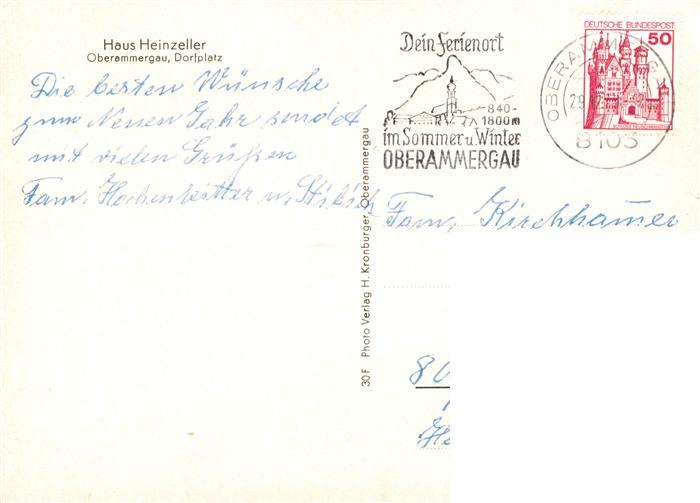 Haus Heinzeller
Oberammergau, Dorfplatz
Die besten Wünsche
zum Neuen Jahr sendet
mit vielen Grüßen
Fam. Hochenleitter u.
30 F Photo Verlag H. Kronburger, Oberammergau
Dein Ferienort
840-
1800 m
im Sommer u. Winter
OBERAMMERGAU
DEUTSCHE BUNDESPOST
50
OBERAMMERGAU
29.12
8103
Fam. Kirchhauser
80